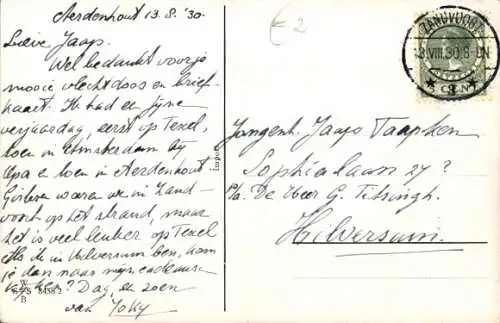 Aerdenhout 13.8.'30.
Lieve Jaap.
Wel bedankt voor je
mooie vlechtdoos en brief-
kaart. Ik had een fijne
verjaardag, eerst op Texel,
toen in Amsterdam bij
Opa en toen in Aerdenhout
Gisteren waren we in Zand-
voort op het strand, maar
het is veel leuker op Texel
Als ik in Hilversum ben, kom
je dan naar mijn cadeaux
kijken? Dag, een zoen
van Joky
£ 2
ZANDVOORT
13.VIII.30.8-9N
3
5 CENT
Jongenh. Jaap Taapken
Sophialaan 27?
P/a. De Heer G. Titsingh.
Hilversum.
Import
W
S 8458 2
B